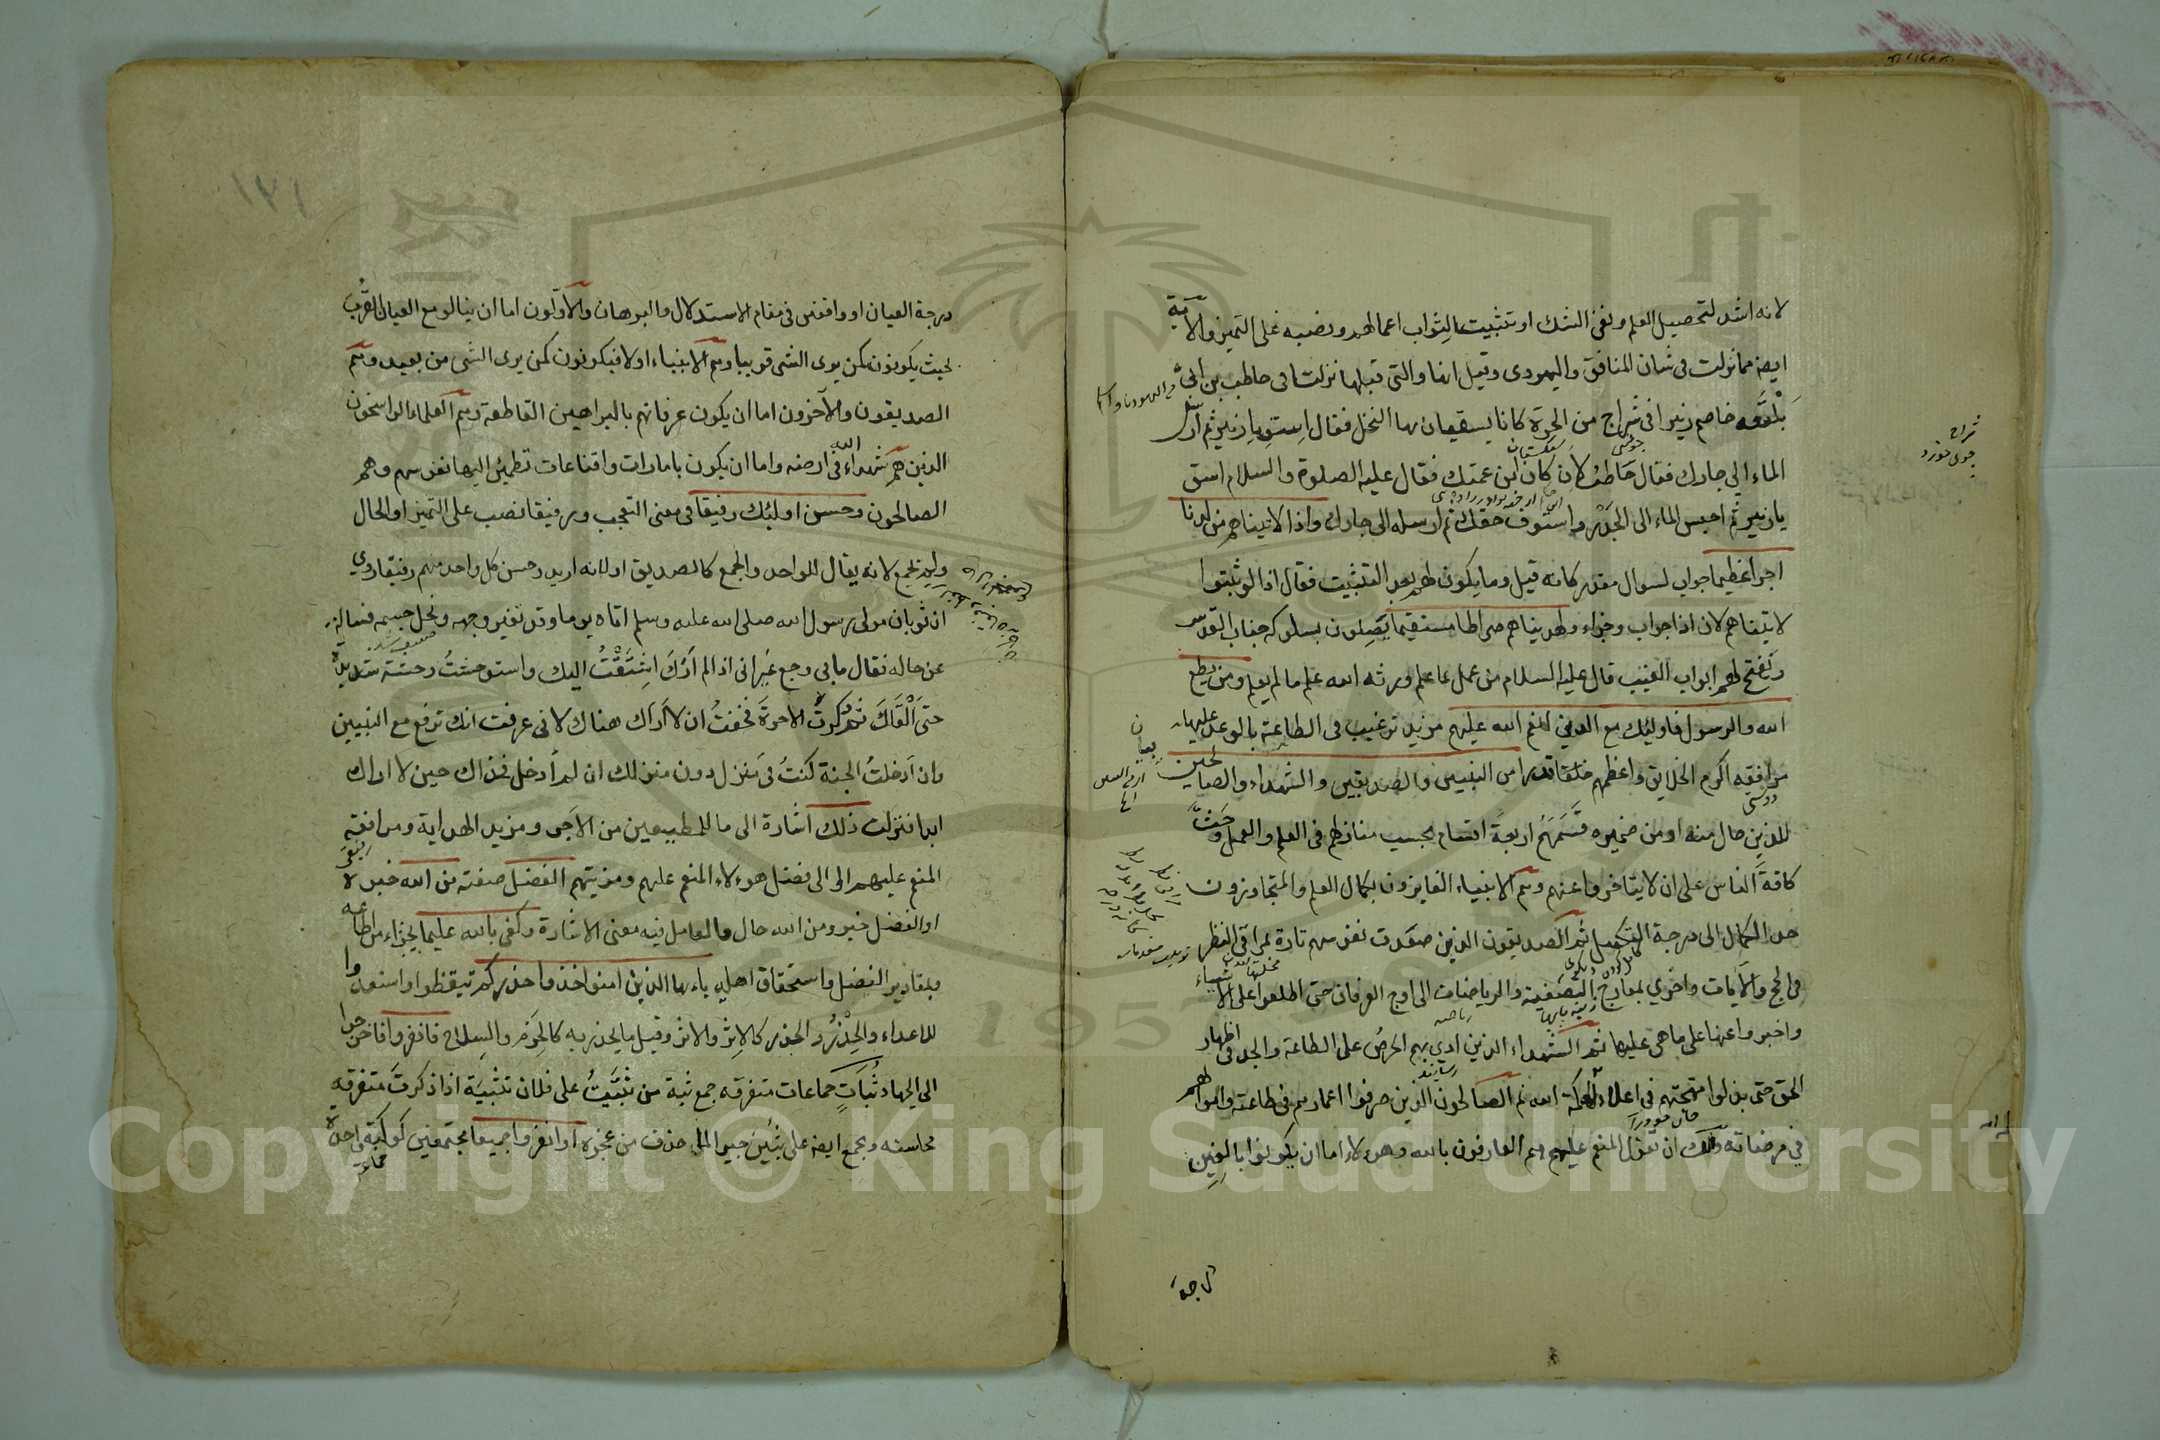 لانه اشد لتحصيل العلم ونفى الشك او تثبيتا لثواب اعمالهم ونصبه على التميز والآية
ايضا مما نزلت فى شان المنافق واليهودى وقيل انها والتى قبلها نزلتا فى حاطب بن ابى
بلتعه خاصم زبيرا فى شراج من الحرة كانا يسقيان بها النخل فقال اسق يا زبير ثم ارسل
الماء الي جارك فقال حاطب لان كان ابن عمتك فقال عليه الصلوة والسلام اسق
يا زبير ثم احبس الماء الى الجدر واستوف حقك ثم ارسله الى جارك واذا لاتيناهم من لدنا
اجرا عظيما جواب لسوال مقدر كانه قيل وما يكون لهم بعد التثبيت فقال اذا لو ثبتوا
لاتيناهم لان اذا جواب وجزاء ولهديناهم صراطا مستقيما يصلون بسلوكه جناب القدس
ويفتح لهم ابواب الغيب قال عليه السلام من عمل بما علم ورثه الله علم ما لم يعلم ومن يطع
الله والرسول فاولئك مع الذين انعم الله عليهم مزيد ترغيب فى الطاعة بالوعد عليها
مرافقه اكرم الخلايق واعظمهم قدرا من النبيين والصديقين والشهداء والصالحين
بيان للذين حال منه او من ضميره قسمهم اربعة اقسام بحسب منازلهم فى العلم والعمل وحث
كافة الناس على ان لا يتاخروا عنهم وهم الانبياء الفايزون بكمال العلم والمتجاوزون
حد الكمال الى درجة التكميل ثم الصديقون الذين صعدت نفوسهم تارة بمراقى النظر
فى الحجج والآيات واخري بمعارج التصفية والرياضات الى اوج العرفان حتى اطلعوا على الاشياء
واخبروا عنها على ما هى عليها ثم الشهداء الذين ادي بهم الحرص على الطاعة والجد فى اظهار
الحق حتى بذلوا مهجتهم فى اعلاء كلمة الله ثم الصالحون الذين صرفوا اعمارهم فى طاعته واموالهم
فى مرضاته ولك ان تقول المنعم عليهم هم العارفون بالله وهوءلاء اما ان يكونوا بالغين
درجة
١٢١
درجة العيان او واقفين فى مقام الاستدلال والبرهان والاولون اما ان ينالو مع العيان القرب
بحيث يكونون كمن يرى الشى قريبا وهم الانبياء او لا فيكونون كمن يرى الشى من بعيد وهم
الصديقون والآخرون اما ان يكون عرفانهم بالبراهين القاطعة وهم العلماء الراسخون
الذين هم شهداء الله فى ارضه واما ان يكون بامارات واقناعات تطمئن اليها نفوسهم وهم
الصالحون وحسن اولئك رفيقا فى معنى التعجب ورفيقا نصب على التميز او الحال
ولم يجمع لانه يقال للواحد والجمع كالصديق او لانه اريد وحسن كل واحد منهم رفيقا روي
ان ثوبان مولى رسول الله صلى الله عليه وسلم اتاه يوما وقد تغير وجهه ونحل جسمه فساله
عن حاله فقال ما بى وجع غير انى اذا لم ارك اشتقت اليك واستوحشت وحشة شديدة
حتى القاك ثم ذكرت الاخرة فخفت ان لا اراك هناك لانى عرفت انك ترفع مع النبيين
وان ادخلت الجنة كنت فى منزل دون منزلك ان لم ادخل فذاك حين لا اراك
ابدا فنزلت ذلك اشارة الى ما للمطيعين من الاجر ومزيد الهداية ومرافقة
المنعم عليهم او الى فضل هوءلاء المنعم عليهم ومزيتهم الفضل صفته من الله خبره
او الفضل خبر ومن الله حال والعامل فيه معنى الاشارة وكفى بالله عليما بجزاء من اطاعه
وبمقادير الفضل واستحقاق اهله يا ايها الذين امنوا خذوا حذركم تيقظوا واستعدوا
للاعداء والحذر والحذر كالاثر والاثر وقيل ما يحذر به كالحزم والسلاح فانفروا فاخرجوا
الى الجهاد ثبات جماعات متفرقه جمع ثبة من ثبيت على فلان تثبية اذا ذكرت متفرقه
محاسنه ويجمع ايضا على ثبين جبرا لما حذف من عجزه او انفروا جميعا مجتمعين كوكبة واحدة
Copyright © King Saud University
1957